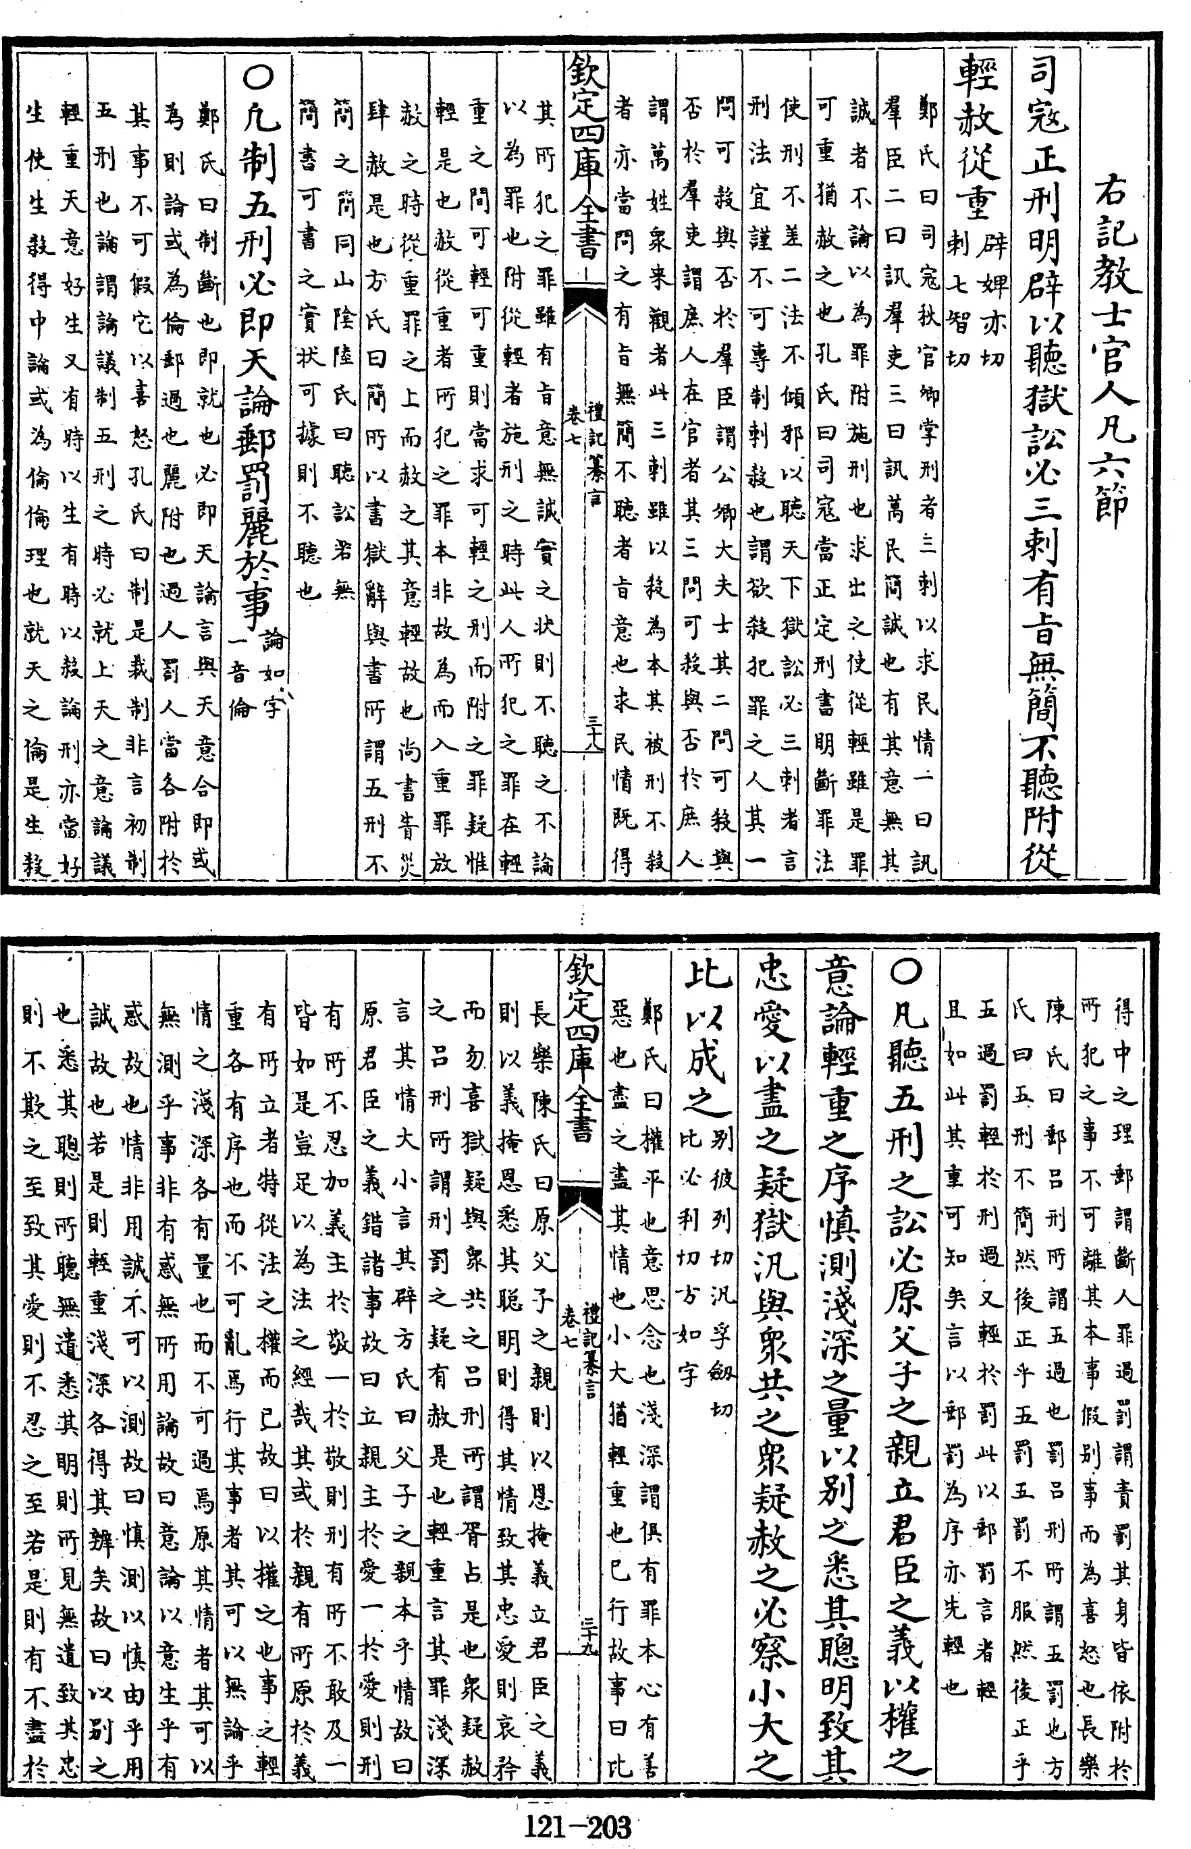 右記教士官人凡六節
司寇正刑明辟以聽獄訟必三刺有旨無簡不聽附從
輕赦從重
辟婢亦切
刺七智切
鄭氏曰司寇秋官卿掌刑者三刺以求民情一曰訊
羣臣二曰訊羣吏三曰訊萬民簡誠也有其意無其
誠者不論以為罪附施刑也求出之使從輕雖是罪
可重猶赦之也孔氏曰司寇當正定刑書明斷罪法
使刑不差二法不傾邪以聽天下獄訟必三刺者言
刑法宜謹不可專制刺殺也謂欲殺犯罪之人其一
問可殺與否於羣臣謂公卿大夫士其二問可殺與
否於羣吏謂庶人在官者其三問可殺與否於庶人
謂萬姓衆来觀者此三刺雖以殺為本其被刑不殺
者亦當問之有旨無簡不聽者旨意也求民情既得
欽定四庫全書
禮記纂言
卷七
三十八
其所犯之罪雖有旨意無誠實之状則不聽之不論
以為罪也附從輕者施刑之時此人所犯之罪在輕
重之間可輕可重則當求可輕之刑而附之罪疑惟
輕是也赦從重者所犯之罪本非故為而入重罪放
赦之時從重罪之上而赦之其意輕故也尚書眚災
肆赦是也方氏曰簡所以書獄辭與書所謂五刑不
簡之簡同山陰陸氏曰聽訟若無
簡書可書之實状可據則不聽也
○凡制五刑必即天論郵罰麗於事
論如字
一音倫
鄭氏曰制斷也即就也必即天論言與天意合即或
為則論或為倫郵過也麗附也過人罰人當各附於
其事不可假它以喜怒孔氏曰制是裁制非言初制
五刑也論謂論議制五刑之時必就上天之意論議
輕重天意好生又有時以生有時以殺論刑亦當好
生使生殺得中論或為倫倫理也就天之倫是生殺
得中之理郵謂斷人罪過罰謂責罰其身皆依附於
所犯之事不可離其本事假别事而為喜怒也長樂
陳氏曰郵吕刑所謂五過也罰吕刑所謂五罰也方
氏曰五刑不簡然後正乎五罰五罰不服然後正乎
五過罰輕於刑過又輕於罰此以郵罰言者輕
且如此其重可知矣言以郵罰為序亦先輕也
○凡聽五刑之訟必原父子之親立君臣之義以權之
意論輕重之序慎測淺深之量以别之悉其聰明致其
忠愛以盡之疑獄汎與衆共之衆疑赦之必察小大之
比以成之
别彼列切汎孚劔切
比必利切方如字
鄭氏曰權平也意思念也淺深謂俱有罪本心有善
惡也盡之盡其情也小大猶輕重也已行故事曰比
欽定四庫全書
禮記纂言
卷七
三十九
長樂陳氏曰原父子之親則以恩掩義立君臣之義
則以義掩恩悉其聪明則得其情致其忠愛則哀矜
而勿喜獄疑與衆共之吕刑所謂胥占是也衆疑赦
之吕刑所謂刑罰之疑有赦是也輕重言其罪淺深
言其情大小言其辟方氏曰父子之親本乎情故曰
原君臣之義錯諸事故曰立親主於愛一於愛則刑
有所不忍加義主於敬一於敬則刑有所不敢及一
皆如是豈足以為法之經哉其或於親有所原於義
有所立者特從法之權而已故曰以權之也事之輕
重各有序也而不可亂焉行其事者其可以無論乎
情之淺深各有量也而不可過焉原其情者其可以
無測乎事非有惑無所用論故曰意論以意生乎有
惑故也情非用誠不可以測故曰慎測以慎由乎用
誠故也若是則輕重淺深各得其辨矣故曰以别之
也悉其聰則所聽無遺悉其明則所見無遺致其忠
則不欺之至致其愛則不忍之至若是則有不盡於
121-203